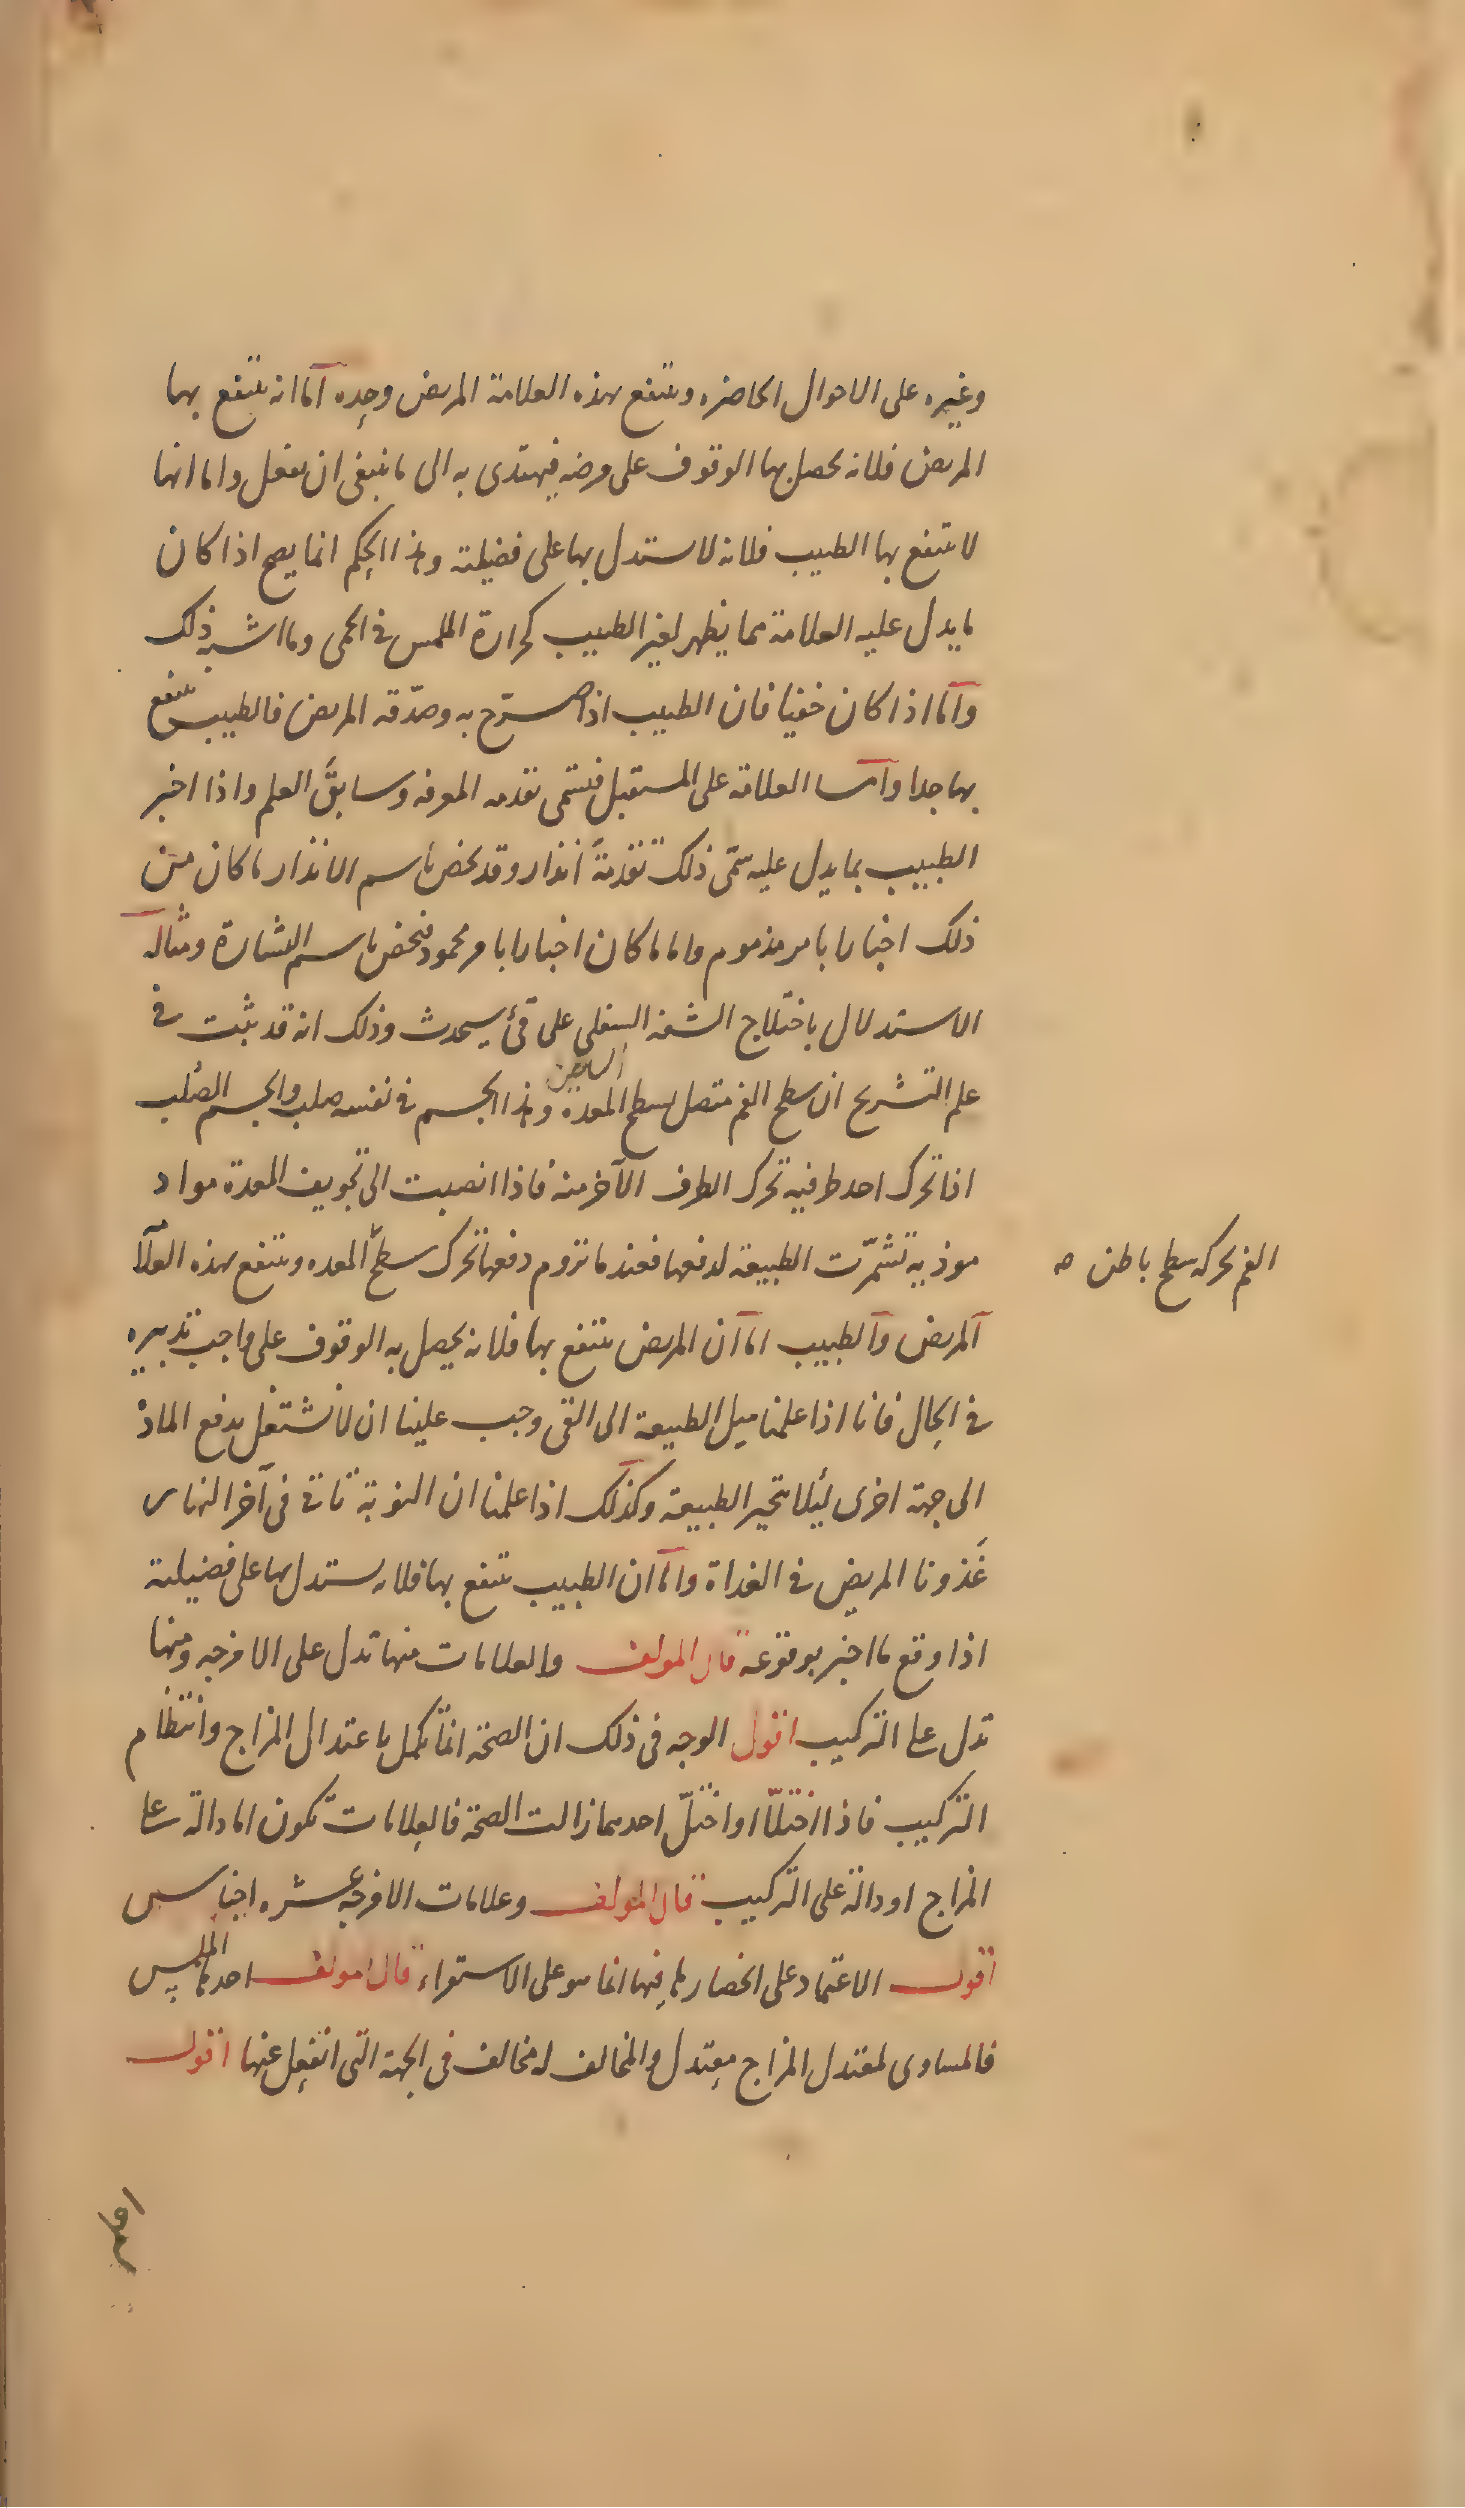 وغيره على الاحوال الحاضره وينتفع بهذه العلامة المريض وحده اما انه ينتفع بها
المريض فلانه يحصل بها الوقوف على مرضه فيهتدى به الى ما ينبغى ان يفعل واما انها
لا ينتفع بها الطبيب فلانه لا يستدل بها على فضيلته وهذا الحكم انما يصح اذا كان
ما يدل عليه العلامة مما يظهر لغير الطبيب كحرارة الملمس فى الحمى وما اشبه ذلك
واما اذا كان خفيا فان الطبيب اذا صرّح به وصدّقه المريض فالطبيب ينتفع
بها جدا واما العلامة على المستقبل فتسمى تقدمه المعرفه وسابق العلم واذا اخبر
الطبيب بما يدل عليه سمّى ذلك تقدمةً انذار وقد يخص باسم الانذار ما كان من
ذلك اخبارا بامر مذموم واما ما كان اخبارا بامر محمود فيخص باسم البشارة ومثاله
الاستدلال باختلاج الشفه السفلى على قئ سيحدث وذلك انه قد يثبت فى
علم التشريح ان سطح الفم متصل بسطح المعدة وهذا الجسم فى نفسه صلب والجسم الصُلب
اذا تحرك احد طرفيه تحرك الطرف الآخر منه فاذا انصبت الى تجويف المعدة مواد
موذيه تشمّرت الطبيعة لدفعها فعند ما تروم دفعها تحرك سطح المعده وينتفع بهذه العلا
الفم بحركه سطح باطن صه
المريض والطبيب اما ان المريض ينتفع بها فلانه يحصل به الوقوف على واجب تدبيره
فى الحال فانا اذا علمنا ميل الطبيعة الى القى وجب علينا ان لا نشتغل بدفع المادة
الى جهة اخرى ليلا يتحير الطبيعة وكذلك اذا علمنا ان النوبة تاتى فى آخر النهار
غَذونا المريض فى الغداة واما ان الطبيب ينتفع بها فلانه يستدل بها على فضيلته
اذا وقع ما اخبر بوقوعه قال المولف والعلامات منها تدل على الامزجه ومنها
تدل على التركيب اقول الوجه فى ذلك ان الصحة انما تكمل باعتدال المزاج وانتظام
التركيب فاذا اختلّا او اختلّ احدهما زالت الصحة فالعلامات تكون اما دالة على
المزاج او دالة على التركيب قال المولف وعلامات الامزجه عشره اجناس
اقول الاعتماد على انحصارها فيها انما هو على الاستقراء قال المولف احدها الملمس
فالمساوى لمعتدل المزاج معتدل والمخالف له مخالف فى الجهة التى انفعل عنها اقول